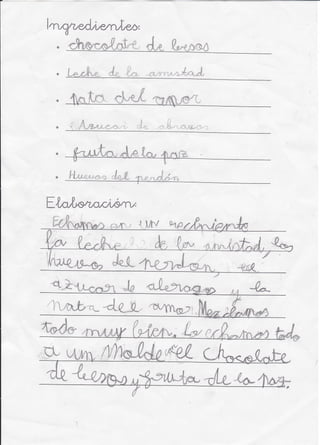 Ingredientes:
• chocolate de besos
• Leche de la amistad
• nata del amor
• Azucar de abrazos
• fruta de la paz.
• Huevos del perdón
Elaboración:
Echamos en un recipiente
la leche de la amistad, los
huevos del perdon, el
azucar de abrazos y la
nata del amor Mezclamos
todo muy bien. Lo echamos todo
a um Molde el Chocolate
de besos y fruta de la paz.